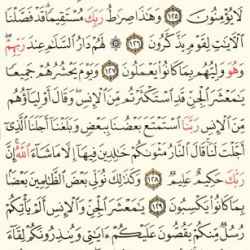 لَا يُؤْمِنُونَ ١٢٥ وَهَٰذَا صِرَٰطُ رَبِّكَ مُسْتَقِيمًا قَدْ فَصَّلْنَا
ٱلْءَايَٰتِ لِقَوْمٍ يَذَّكَّرُونَ ١٢٦ ۞ لَهُمْ دَارُ ٱلسَّلَٰمِ عِندَ رَبِّهِمْ
وَهُوَ وَلِيُّهُم بِمَا كَانُوا۟ يَعْمَلُونَ ١٢٧ وَيَوْمَ يَحْشُرُهُمْ جَمِيعًا
يَٰمَعْشَرَ ٱلْجِنِّ قَدِ ٱسْتَكْثَرْتُم مِّنَ ٱلْإِنسِ وَقَالَ أَوْلِيَآؤُهُم
مِّنَ ٱلْإِنسِ رَبَّنَا ٱسْتَمْتَعَ بَعْضُنَا بِبَعْضٍ وَبَلَغْنَآ أَجَلَنَا ٱلَّذِىٓ
أَجَّلْتَ لَنَا قَالَ ٱلنَّارُ مَثْوَىٰكُمْ خَٰلِدِينَ فِيهَآ إِلَّا مَا شَآءَ ٱللَّهُ إِنَّ
رَبَّكَ حَكِيمٌ عَلِيمٌ ١٢٨ وَكَذَٰلِكَ نُوَلِّى بَعْضَ ٱلظَّٰلِمِينَ بَعْضًا
بِمَا كَانُوا۟ يَكْسِبُونَ ١٢٩ يَٰمَعْشَرَ ٱلْجِنِّ وَٱلْإِنسِ أَلَمْ يَأْتِكُمْ
رُسُلٌ مِّنكُمْ يَقُصُّونَ عَلَيْكُمْ ءَايَٰتِى وَيُنذِرُونَكُمْ لِقَآءَ